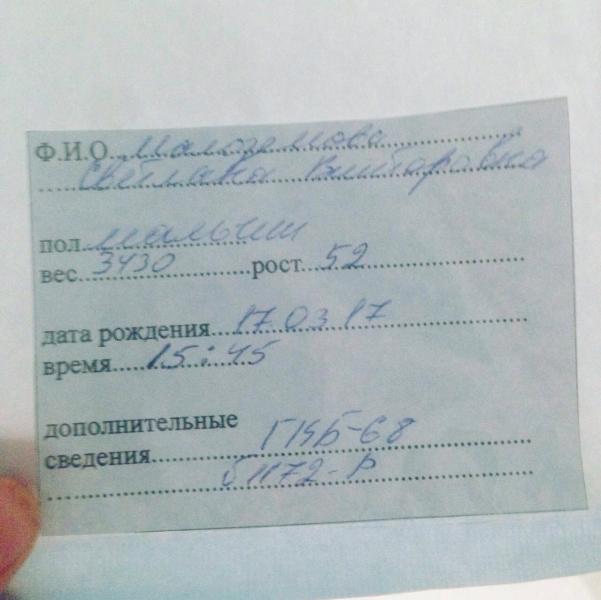 Ф.И.О. Малоземова
Светлана Викторовна
пол мальчик
вес 3430 рост 52
дата рождения 17.03.17
время 15:45
дополнительные
сведения ГКБ-68